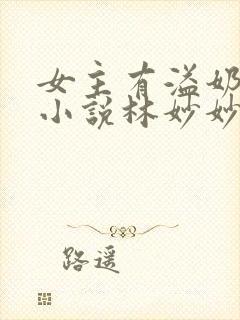 女主有溢奶
小说林妙妙
路遥